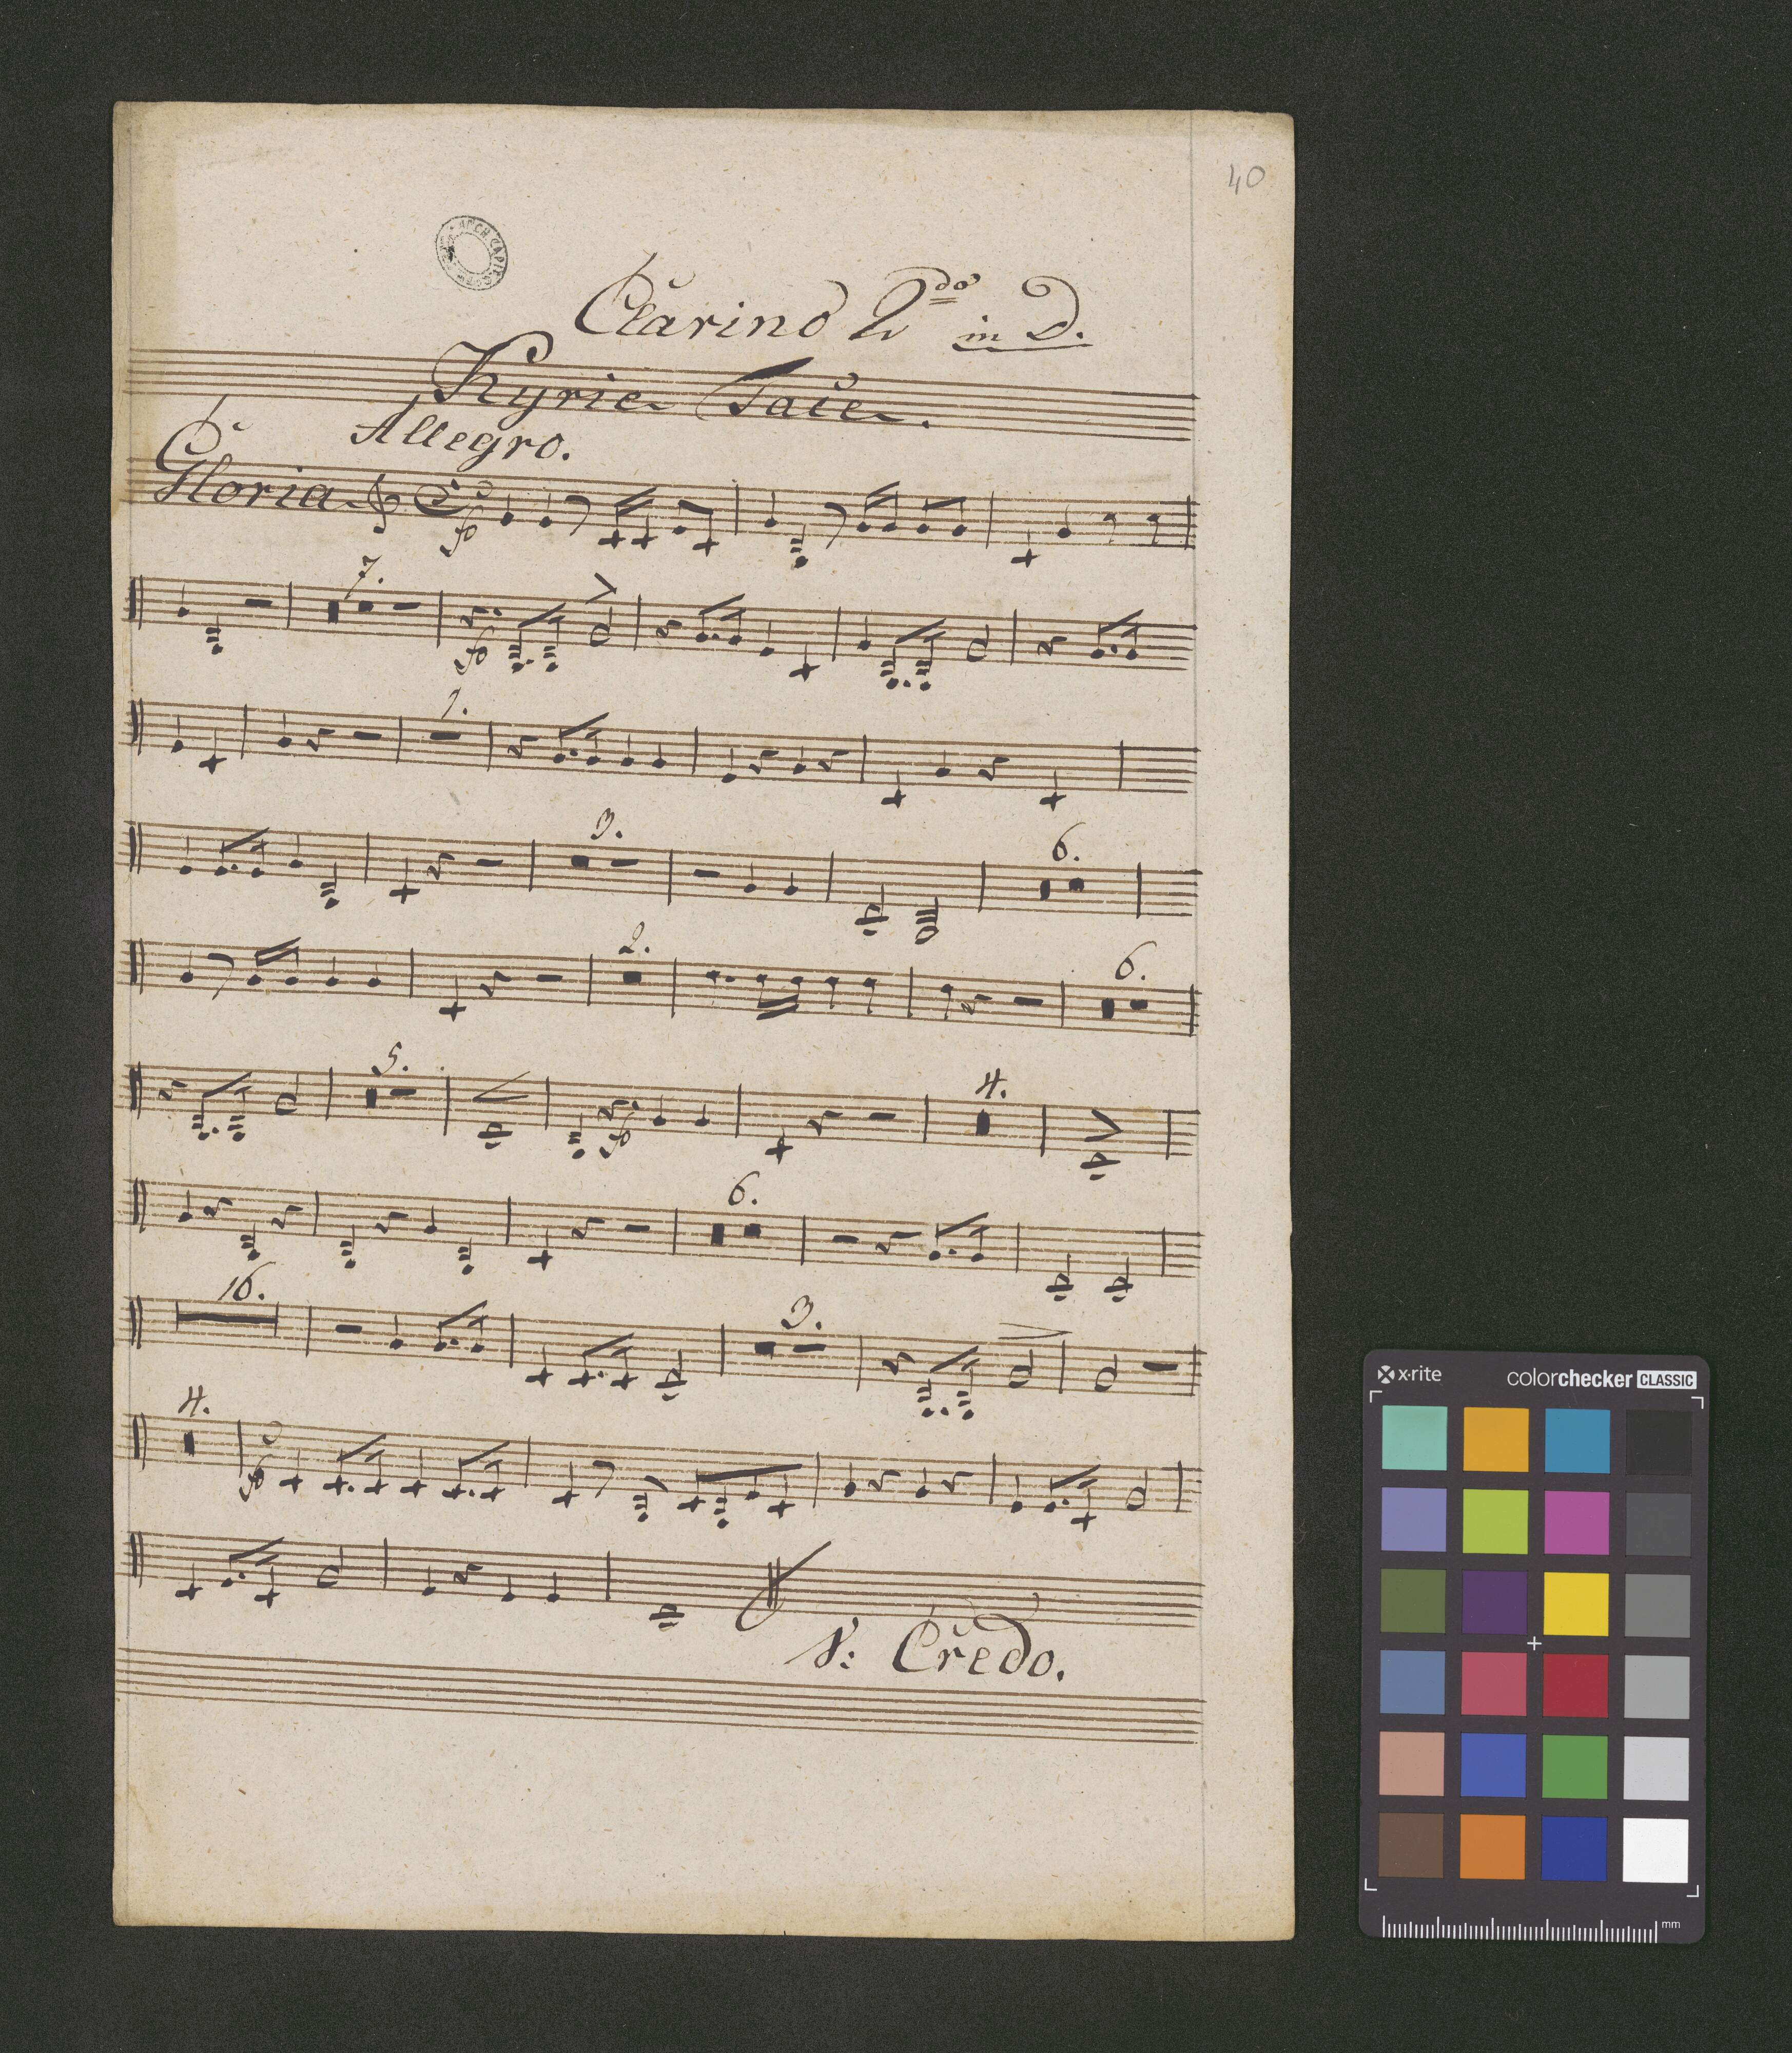 40
Clarino 2do in D.
Kyrie Tace.
Allegro.
Gloria
fo
7.
fo
1.
3.
6.
2.
6.
5.
fo
4.
6.
16.
3.
4.
fo
V: Credo.
x·rite
colorchecker CLASSIC
mm